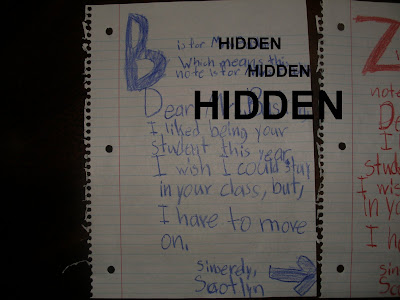 B is for M HIDDEN
Which means this
note is for HIDDEN
Dear Mr. HIDDEN
I liked being your
student this year.
I wish I could stay
in your class, but,
I have to move
on.
sincerely,
Scotlyn
Z
note
De
I
stude
I wis
in yo
I h
on
sin
S